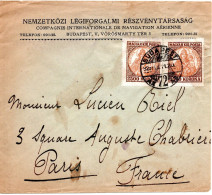 NEMZETKÖZI LÉGIFORGALMI RÉSZVÉNYTÁRSASÁG
COMPAGNIE INTERNATIONALE DE NAVIGATION AÉRIENNE
BUDAPEST, V. VÖRÖSMARTY TÉR 2
MAGYAR POSTA
BUDAPEST
72
Monsieur Lucien Kiel
3 Square Auguste Chabrières
Paris
France